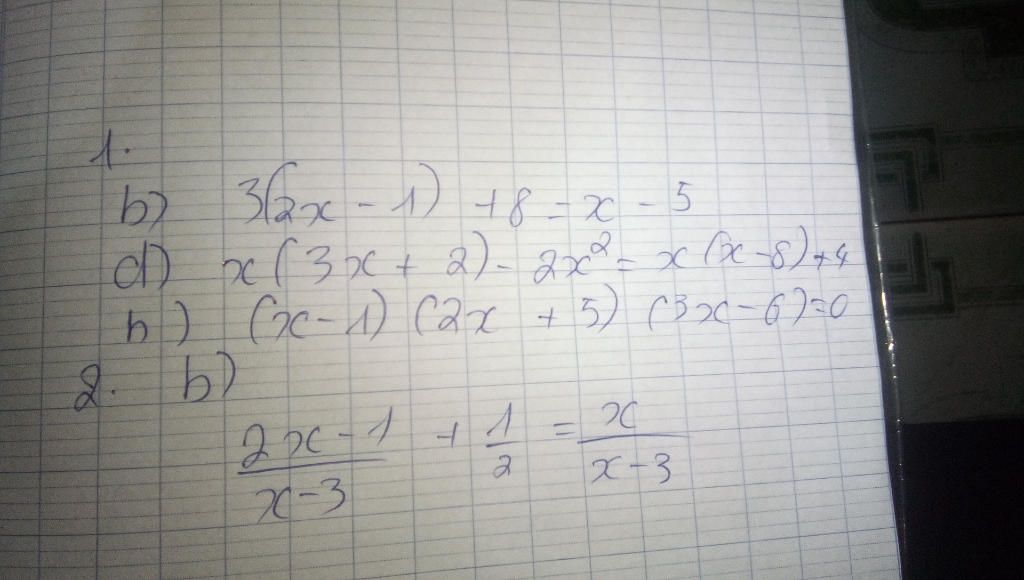 1.
b) 3(2x - 1) + 8 = x - 5
d) x(3x + 2) - 2x² = x(x - 8) + 4
h) (x - 1) (2x + 5) (3x - 6) = 0
2. b)
\frac{2x - 1}{x - 3} + \frac{1}{2} = \frac{x}{x - 3}